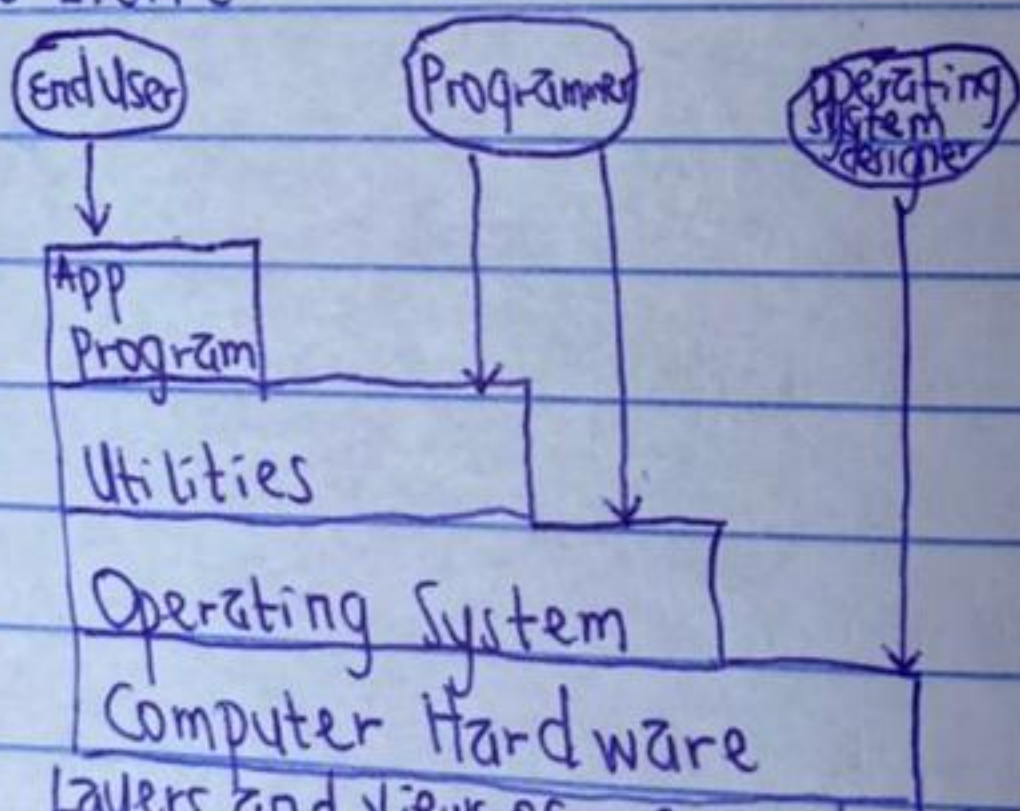 End User
Programmer
operating
system
designer
App
Program
Utilities
Operating System
Computer Hardware
Layers and View of